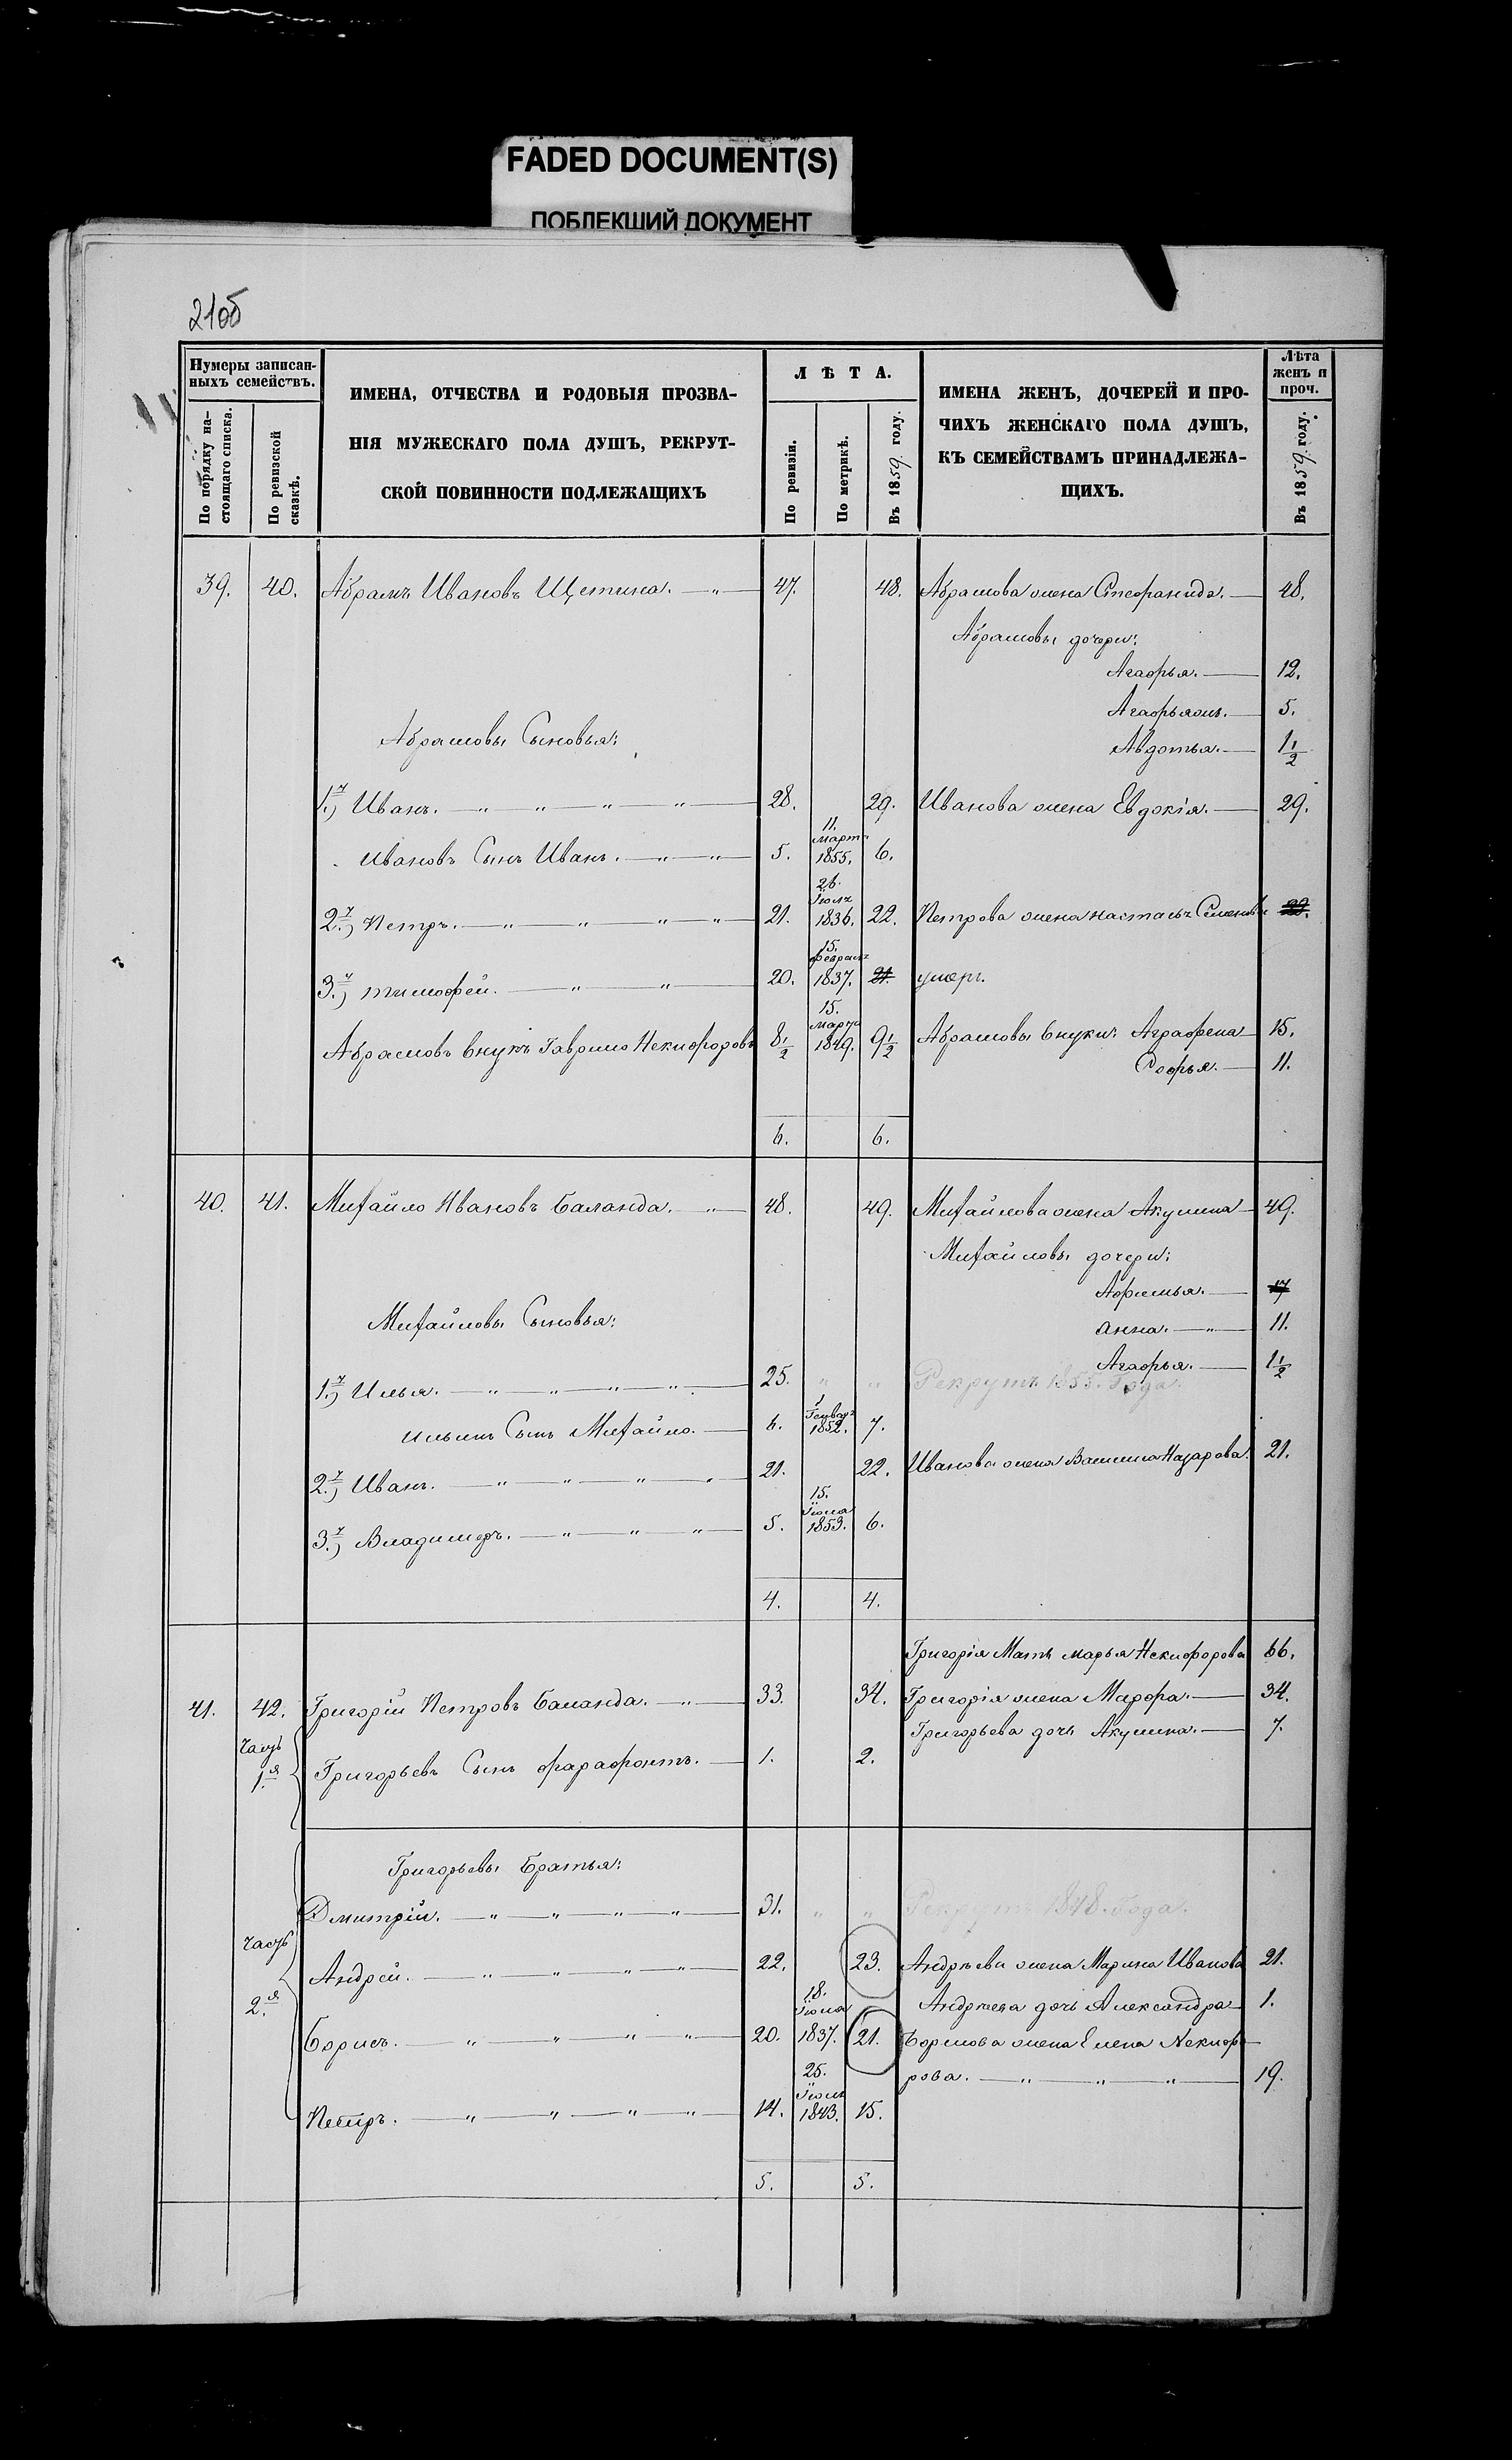 FADED DOCUMENT(S)
ПОБЛЕКШИЙ ДОКУМЕНТ
21об
Нумеры записан-
ныхъ семействъ.
По порядку на-
стоящаго списка.
По ревизской
сказкѣ.
ИМЕНА, ОТЧЕСТВА И РОДОВЫЯ ПРОЗВА-
НІЯ МУЖЕСКАГО ПОЛА ДУШЪ, РЕКРУТ-
СКОЙ ПОВИННОСТИ ПОДЛЕЖАЩИХЪ
ЛѢТА.
По ревизіи.
По метрикѣ.
Въ 1859. году.
ИМЕНА ЖЕНЪ, ДОЧЕРЕЙ И ПРО-
ЧИХЪ ЖЕНСКАГО ПОЛА ДУШЪ,
КЪ СЕМЕЙСТВАМЪ ПРИНАДЛЕЖА-
ЩИХЪ.
Лѣта
женъ и
проч.
Въ 1859. году.
39. 40. Абрамъ Ивановъ Щетина. — " — 47. 48. Абрамова жена Стефанида. — 48.
Абрамовы дочери:
Агафья. — 12.
Агафьяжъ. — 5.
Абрамовы Сыновья:
Авдотья. — 1 1/2
1.й) Иванъ. — " — " — " — " — 28. 29. Иванова жена Евдокія. — 29.
Ивановъ Сынъ Иванъ. — " — " — 5. 11. Марта 1855. 6.
2.й) Петръ. — " — " — " — " — 21. 26. Іюля 1836. 22. Петрова жена Настасья Семенова 22.
3.й) Тимофей. — " — " — 20. 15. Февраля 1837. 21. умеръ.
Абрамовъ внукъ Гаврило Некифоровъ 8 1/2 15. Марта 1849. 9 1/2 Абрамовы внуки: Аграфена — 15.
Софья. — 11.
6. 6.
40. 41. Михайло Ивановъ Баланда. — " — 48. 49. Михайлова жена Акулина — 49.
Михайловы дочери:
Афимья. — 17
Михайловы Сыновья:
Анна. — " — 11.
Агафья. — 1 1/2
1.й) Илья. — " — " — " — " — 25. " " Рекрутъ 1855. Года.
Ильинъ Сынъ Михайло. — 6. 1 Генваря 1852. 7.
2.й) Иванъ. — " — " — " — " — 21. 22. Иванова жена Назарова. 21.
3.й) Владимеръ. — " — " — " — 5. 15. Іюля 1853. 6.
4. 4.
Григорія Мать Марья Некифорова 66.
41. 42. Григорій Петровъ Баланда. — " — 33. 34. Григорія жена Марфа. — 34.
Часть
1.я
Григорьева дочь Акулина. — 7.
Григорьевъ Сынъ Фарафонтъ. — 1. 2.
Григорьевы Братья:
Дмитрій. — " — " — " — " — 31. " " Рекрутъ 1848. Года.
Часть
2.я
Андрей. — " — " — " — " — 22. 23. Андрѣева жена Марина Иванова 21.
Андрѣева дочь Александра — 1.
Борисъ. — " — " — " — " — 20. 18. Іюля 1837. 21. Борисова жена Елена Некифо-
рова. — " — " — " — 19.
Петръ. — " — " — " — " — 14. 25. Іюля 1843. 15.
5. 5.